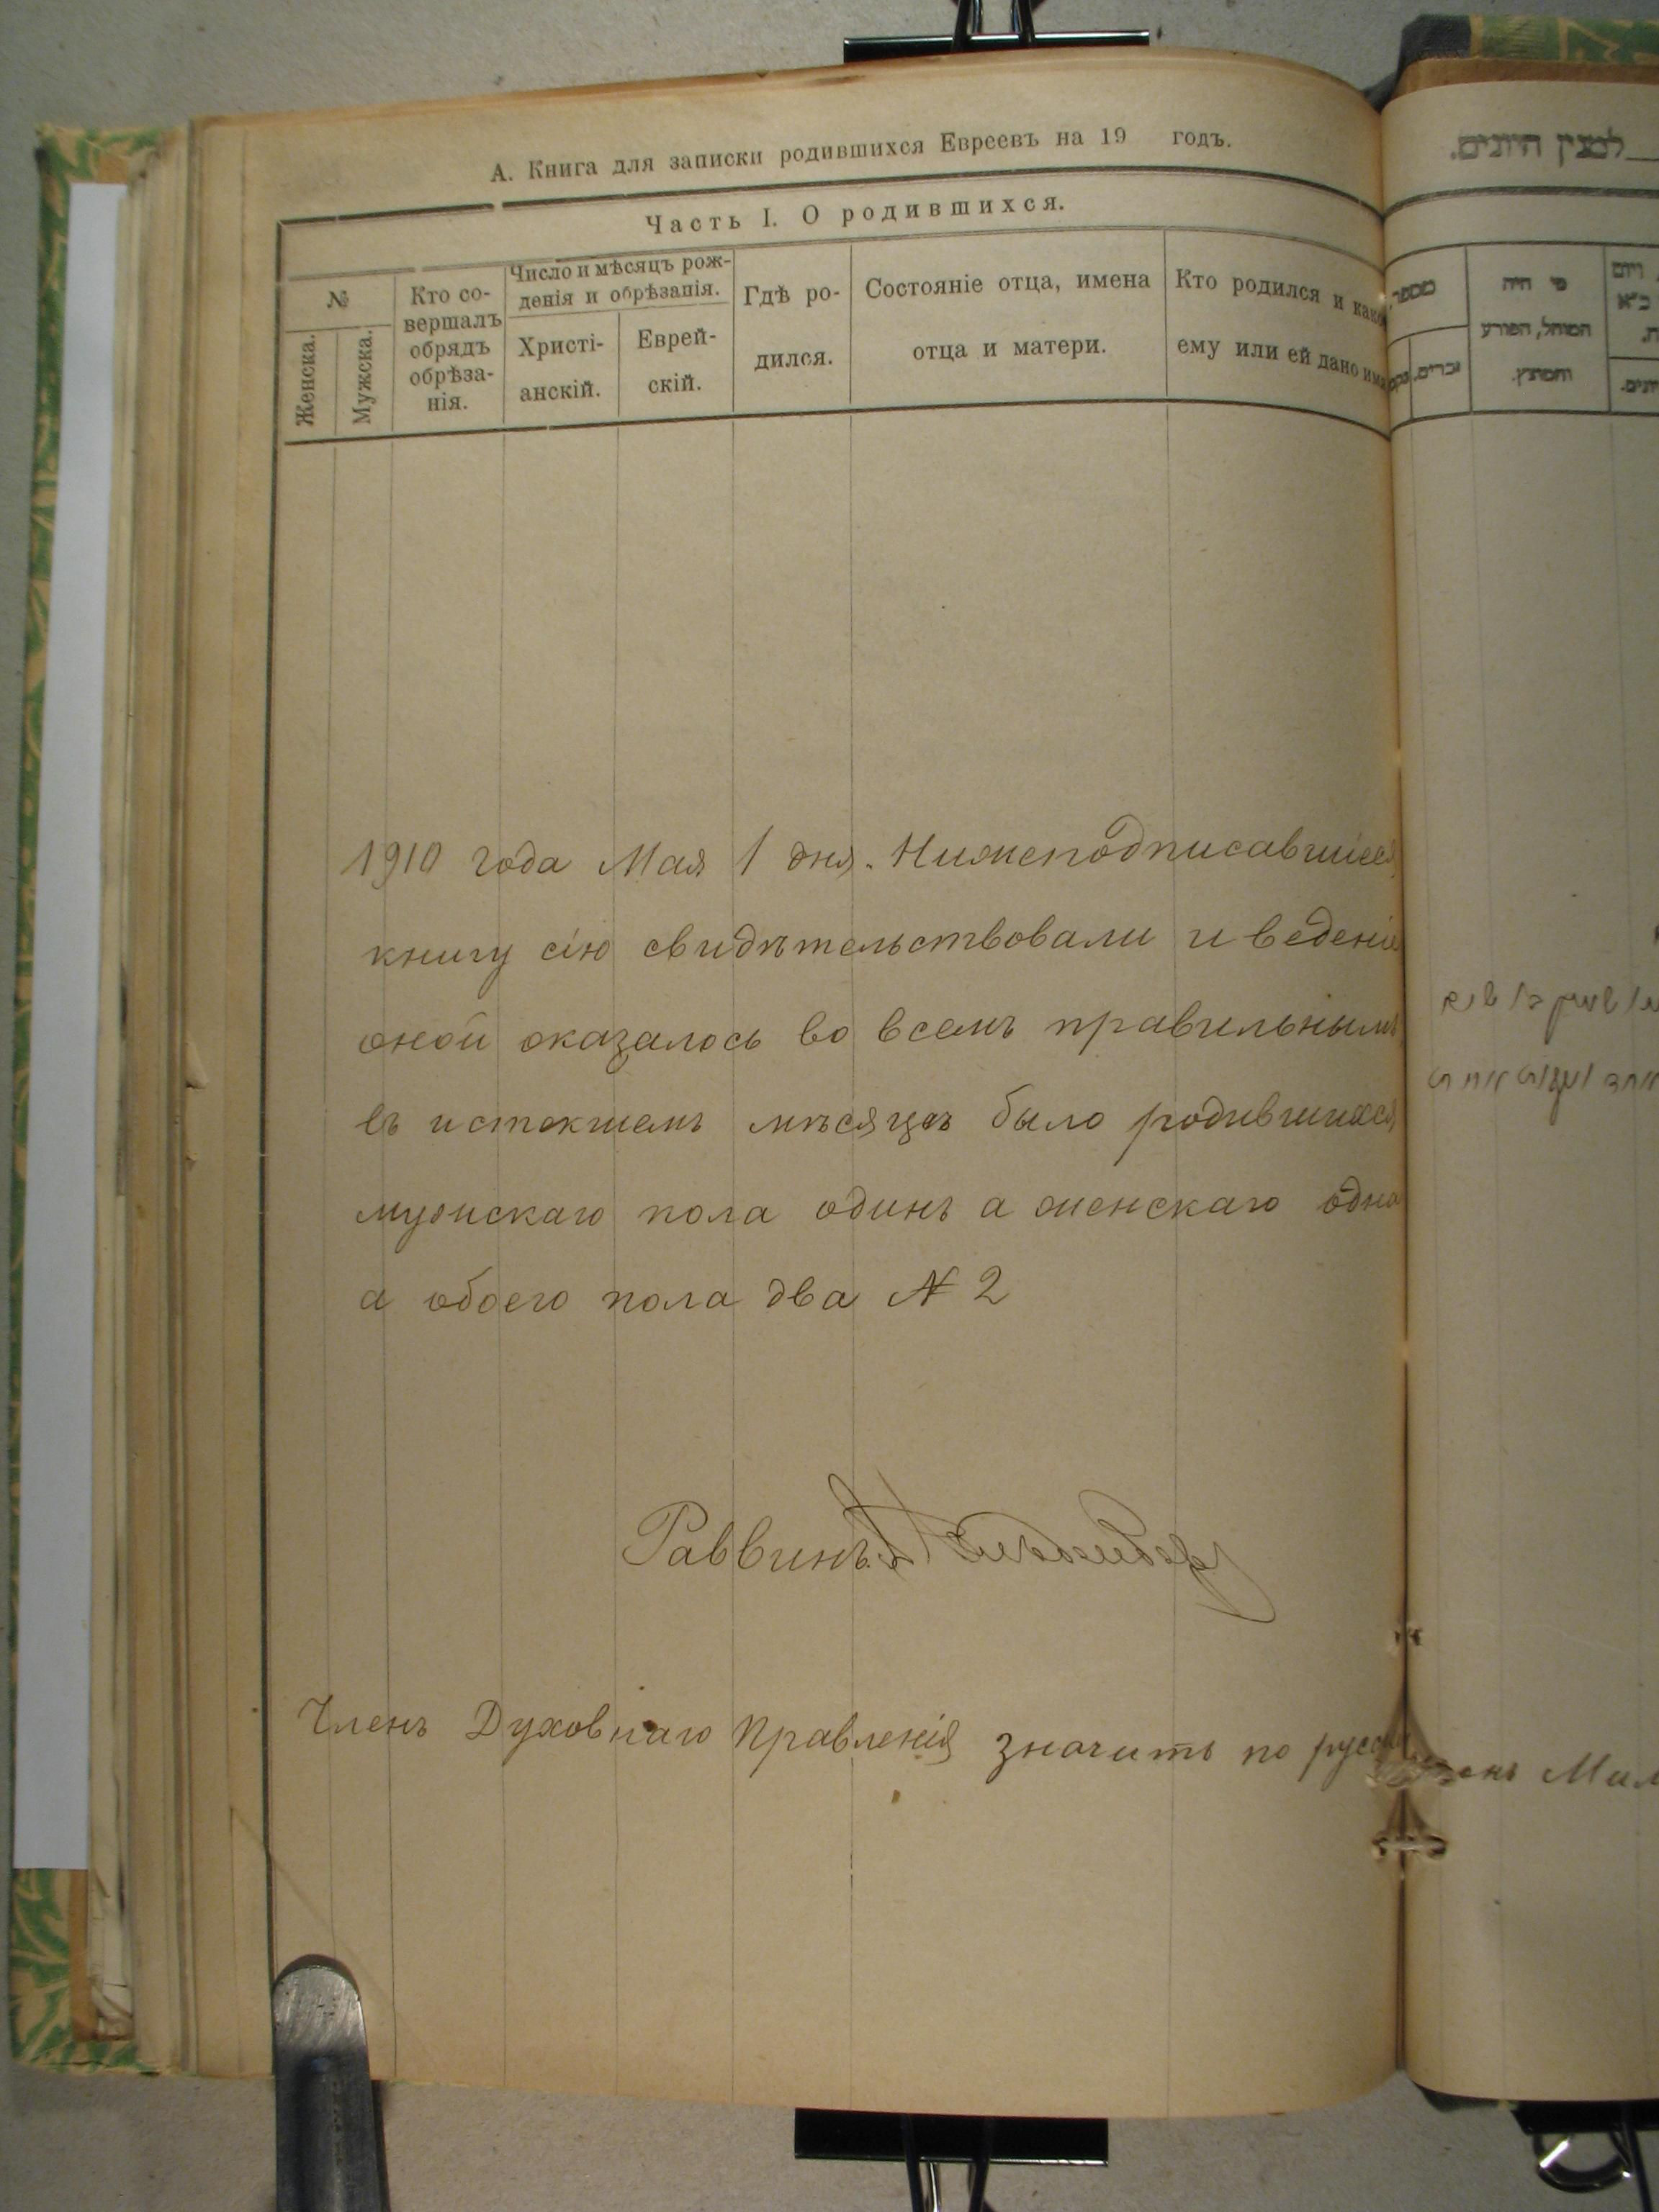 А. Книга для записки родившихся Евреевъ на 19 годъ.
Часть I. О родившихся.
№
Женска.
Мужска.
Кто со-
вершалъ
обрядъ
обрѣза-
нія.
Число и мѣсяцъ рож-
денія и обрѣзанія.
Христі-
анскій.
Еврей-
скій.
Гдѣ ро-
дился.
Состояніе отца, имена
отца и матери.
Кто родился и како
ему или ей дано имя
למנין היונים.
מספר
זכרים.
מי היה
המוהל, הפורע
והמוצץ.
1910 года Мая 1 дня. Нижеподписавшіеся
книгу сію свидѣтельствовали и веденіе
оной оказалось во всемъ правильнымъ
въ истекшемъ мѣсяцѣ было родившихся
мужскаго пола одинъ а женскаго одна
а обоего пола два № 2
Раввинъ
Членъ Духовнаго Правленія значитъ по русски